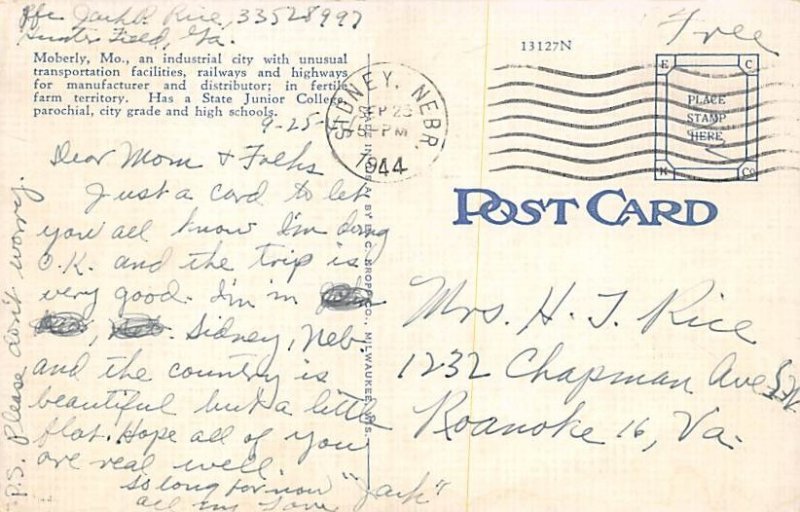 Pfc Jack R. Rice, 33528997
Hunter Field, Ga.
Moberly, Mo., an industrial city with unusual
transportation facilities, railways and highways
for manufacturer and distributor; in fertile
farm territory. Has a State Junior College,
parochial, city grade and high schools.
9-25-
Dear Mom & Folks
Just a card to let
you all know I'm doing
O.K. and the trip is
very good. I'm in
Sidney, Neb.
and the country is
beautiful but a little
flat. Hope all of you
are real well.
So long for now "Jack"
all my love
P.S. Please don't worry.
MADE IN U.S.A. BY E.C. KROPP CO., MILWAUKEE, WIS.
SIDNEY, NEBR.
SEP 25
PM
1944
13127N
Free
E C
PLACE
STAMP
HERE
K Co
POST CARD
Mrs. H. T. Rice
1232 Chapman Ave S.W.
Roanoke 16, Va.